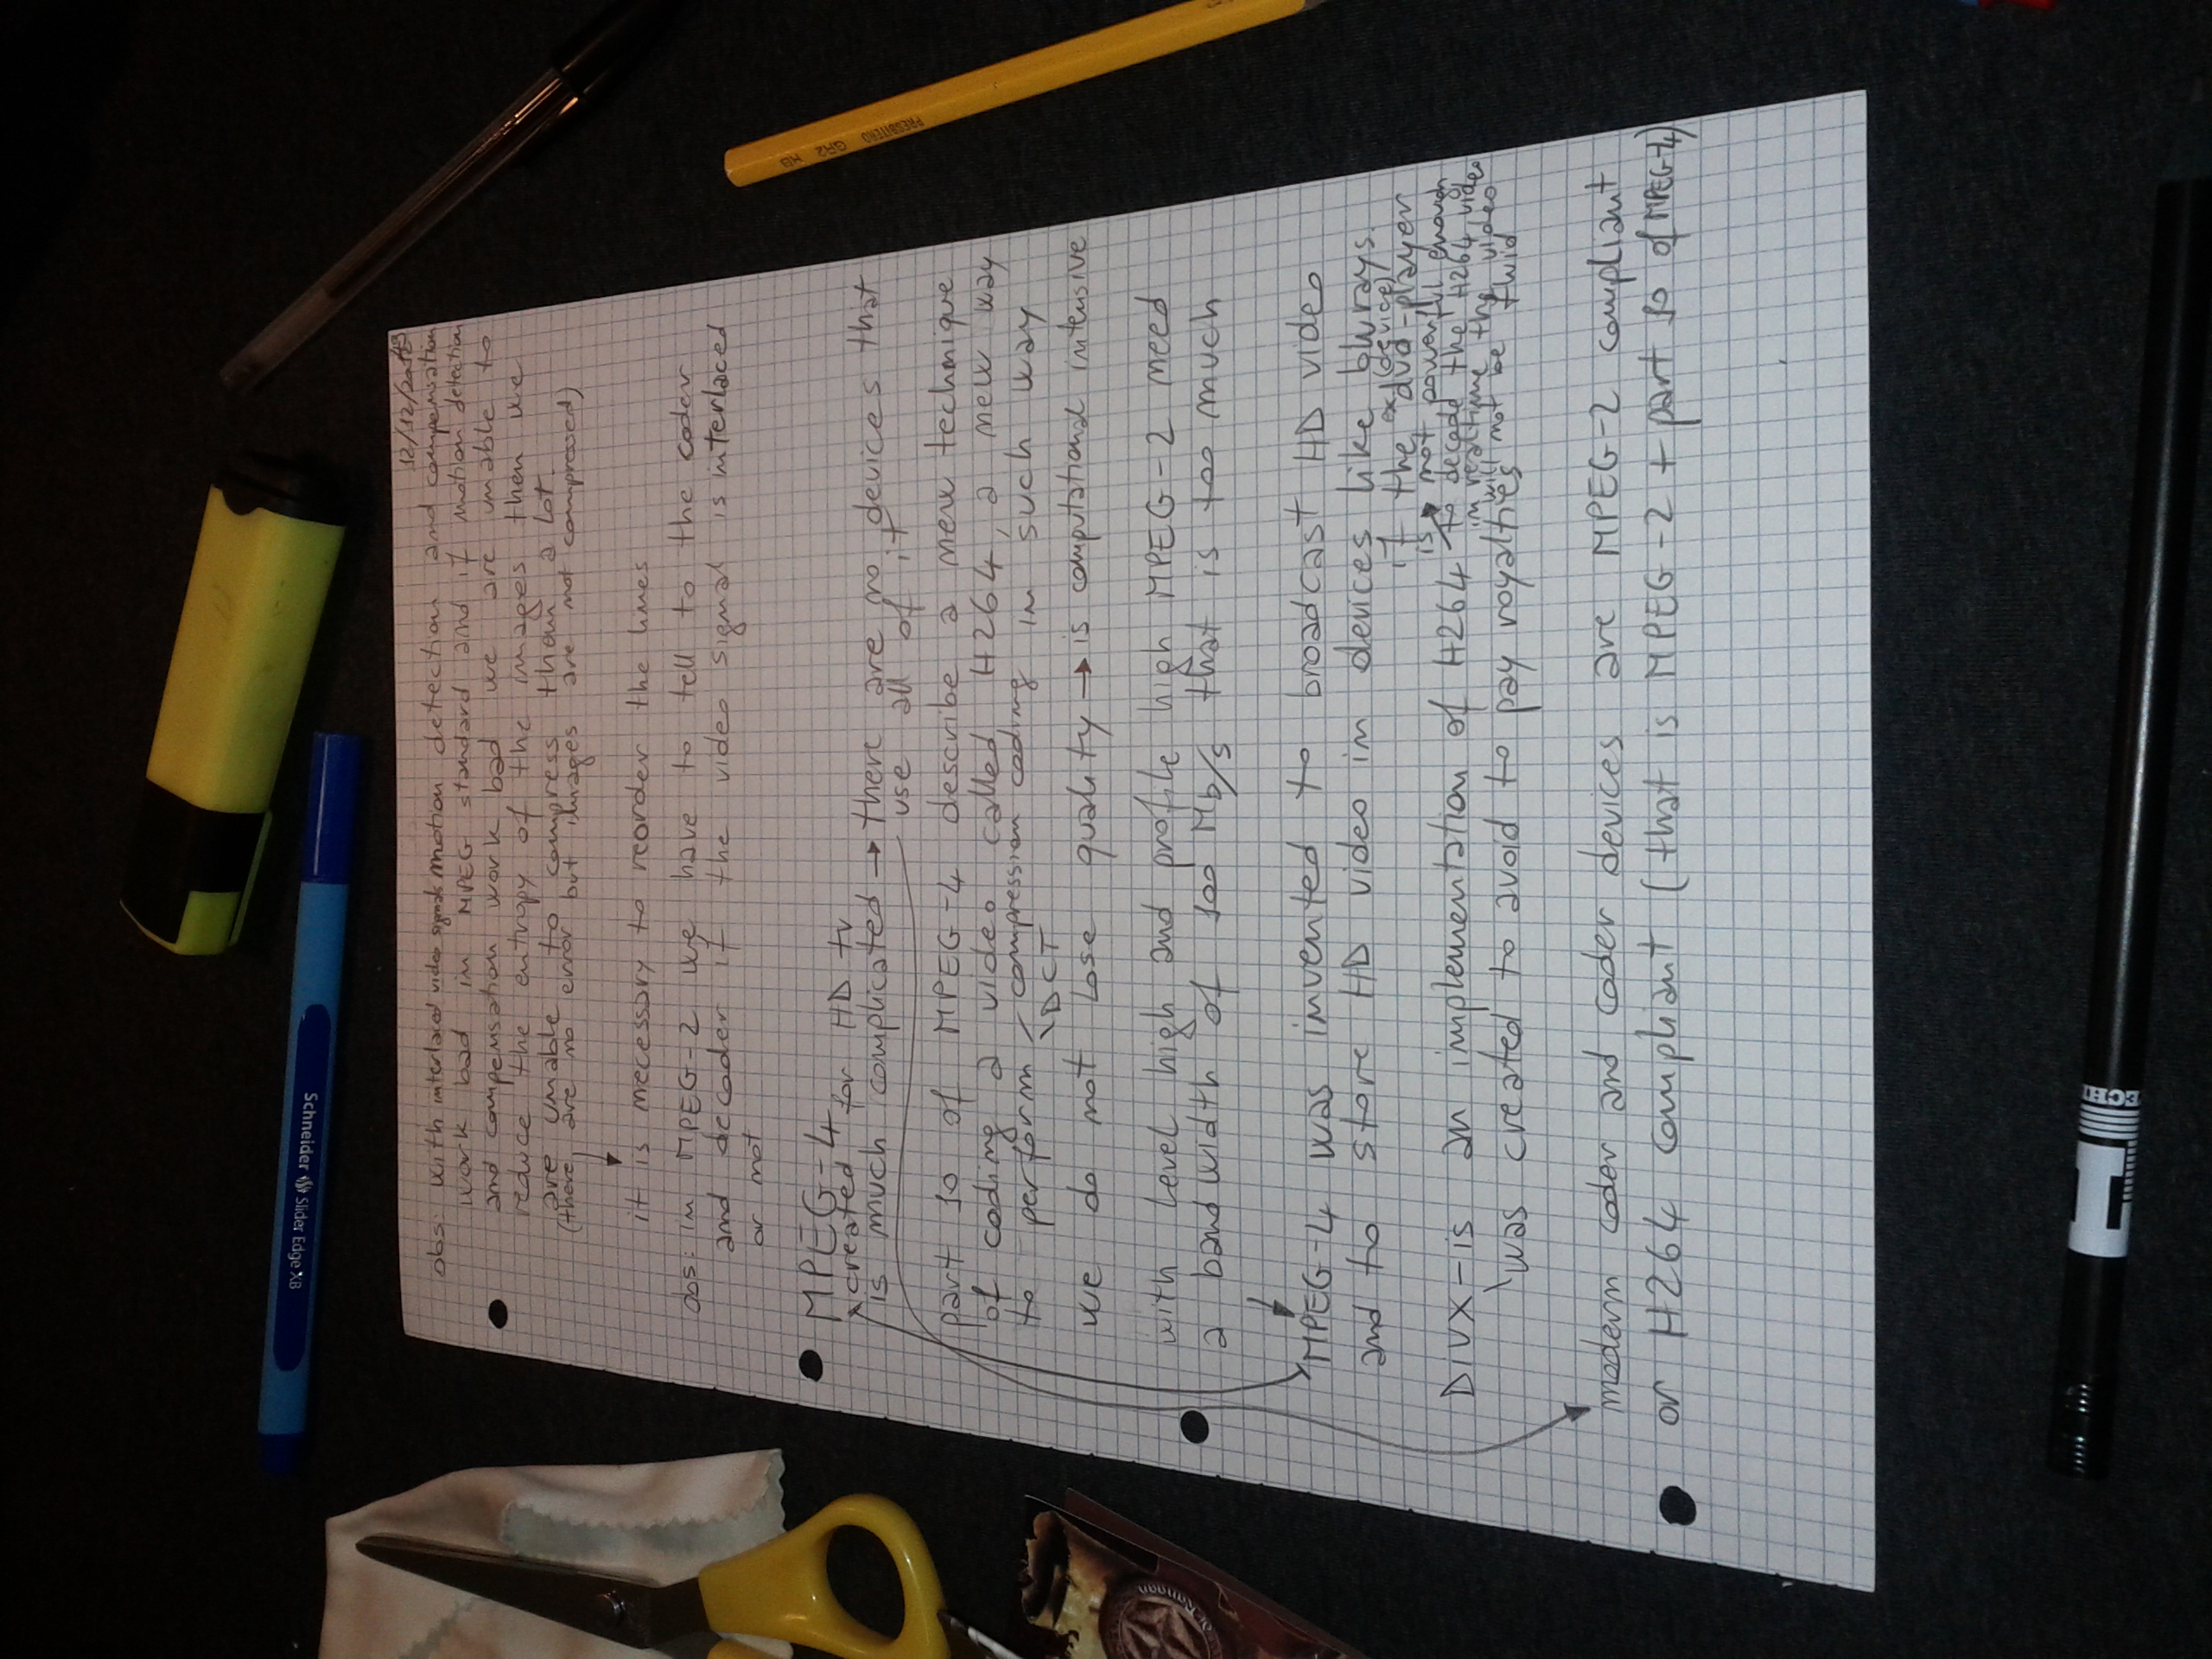 12/12/2013
obs: with interlaced video signals motion detection and compensation
work bad in MPEG standard and if motion detection
and compensation work bad we are unable to
reduce the entropy of the images then we
are unable to compress them a lot.
(there are no error but images are not compressed)
it is necessary to reorder the lines
obs: in MPEG-2 we have to tell to the coder
and decoder if the video signal is interlaced
or not
MPEG-4
created for HD tv
is much complicated → there are no devices that
use all of it
part 10 of MPEG-4 describe a new technique
of coding a video called H264, a new way
to perform compression coding in such way
DCT
we do not lose quality → is computational intensive
with level high and profile high MPEG-2 need
a bandwidth of 100 Mb/s that is too much
MPEG-4 was invented to broadcast HD video
and to store HD video in devices like blurays.
if the ex device
dvd-player
is not powerful enough
DIVX - is an implementation of H264 to decode the H264 video
in realtime the video
will not be fluid
was created to avoid to pay royalties
modern coder and coder devices are MPEG-2 compliant
or H264 compliant (that is MPEG-2 + part 10 of MPEG-4)
Schneider Slider Edge XB
PRESBITERO GR2 HB
TECH